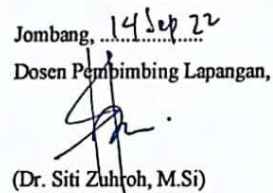 Jombang, 14 Sep 22
Dosen Pembimbing Lapangan,
(Dr. Siti Zuhroh, M.Si)